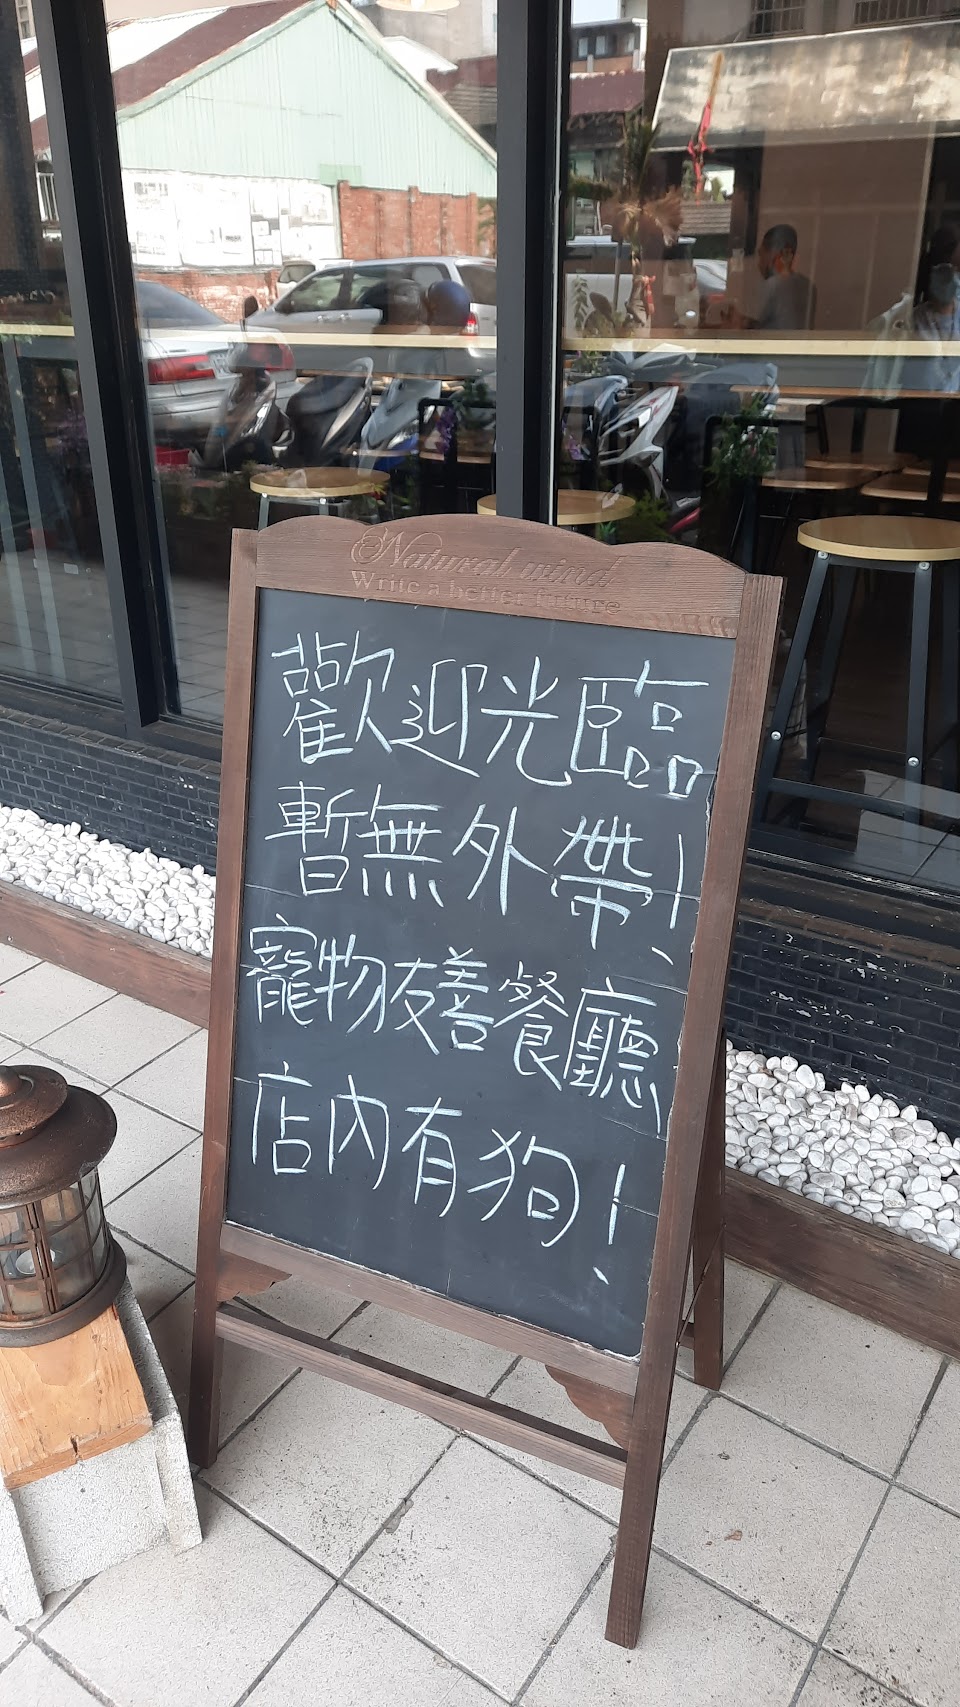 Natural wind
Write a better future
歡迎光臨
暫無外帶!
寵物友善餐廳
店內有狗!